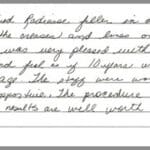 Radiesse filler in
the creases and lines
was very pleased with
feel as if 10 years
The staff were
The procedure
results are well worth